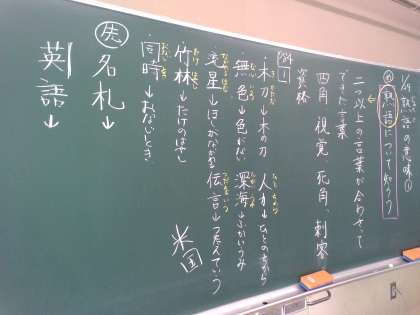 1/29 熟語の意味(1)
め 熟語について知ろう
二つ以上の言葉が合わさって
できた言葉
四角、視覚、死角、刺客
資格
P84
1
木刀→木の刀 人力→ひとのちから
無色→色がない 深海→ふかいうみ
流星→ほしがながれる 伝言→つたえていう
竹林→たけのはやし
同時→おなじとき 米国
先 名札→
英語→